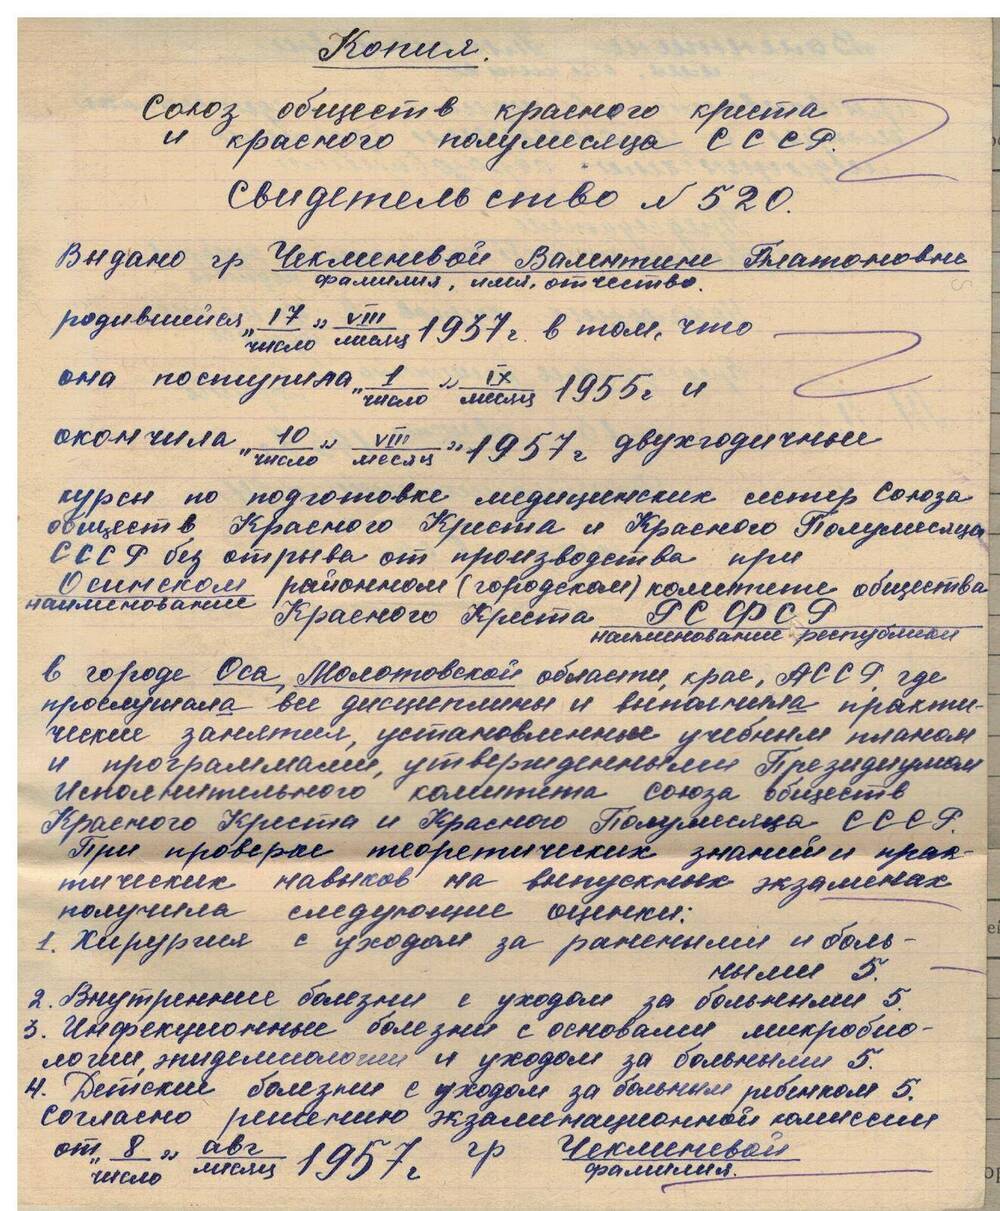 Копия.
Союз обществ красного креста
и красного полумесяца СССР.
Свидетельство № 520.
Выдано гр Чекменевой Валентине Платоновне
фамилия, имя, отчество.
родившейся „ 17 " VIII 1937 г. в том, что
число месяц
она поступила „ 1 " IX 1955 г и
число месяц
окончила „ 10 " VIII " 1957 г двухгодичные
число месяц
курсы по подготовке медицинских сестер Союза
обществ Красного Креста и Красного Полумесяца
СССР без отрыва от производства при
Осинском районном (городском) комитете общества
наименование
Красного Креста РСФСР
наименование республики
в городе Оса, Молотовской области, края, АССР, где
прослушала все дисциплины и выполнила практи-
ческие занятия, установленные учебным планом
и программами, утвержденными Президиумом
Исполнительного комитета союза обществ
Красного Креста и Красного Полумесяца СССР.
При проверке теоретических знаний и прак-
тических навыков на выпускных экзаменах
получила следующие оценки:
1. Хирургия с уходом за ранеными и боль-
ными 5.
2. Внутренние болезни с уходом за больными 5.
3. Инфекционные болезни с основами микробио-
логии, эпидемиологии и уходом за больными 5.
4. Детские болезни с уходом за больным ребенком 5.
Согласно решению экзаменационной комиссии
от „ 8 " авг 1957 г гр Чекменевой
число месяц фамилия.